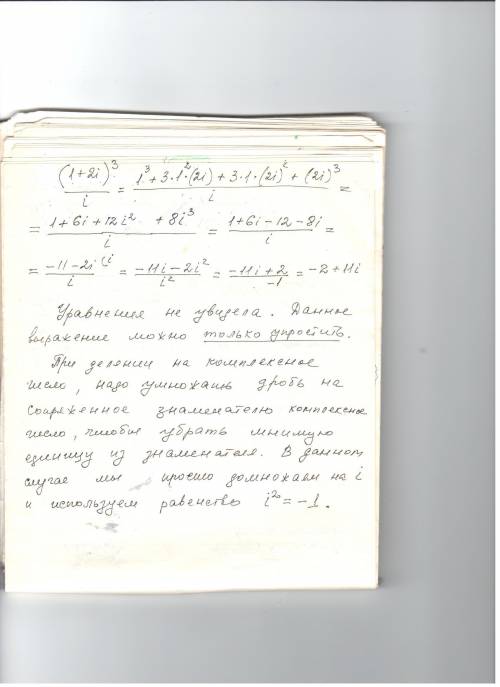 (1+2i)³/i = (1³+3·1²·(2i)+3·1·(2i)²+(2i)³)/i =
= (1+6i+12i²+8i³)/i = (1+6i-12-8i)/i =
= (-11-2i)/i (i = (-11i-2i²)/i² = (-11i+2)/-1 = -2+11i
Уравнения не увидела. Данное
выражение можно только упростить.
При делении на комплексное
число, надо умножать дробь на
сопряженное знаменателю комплексное
число, чтобы убрать мнимую
единицу из знаменателя. В данном
случае мы просто домножаем на i
и используем равенство i²=-1.